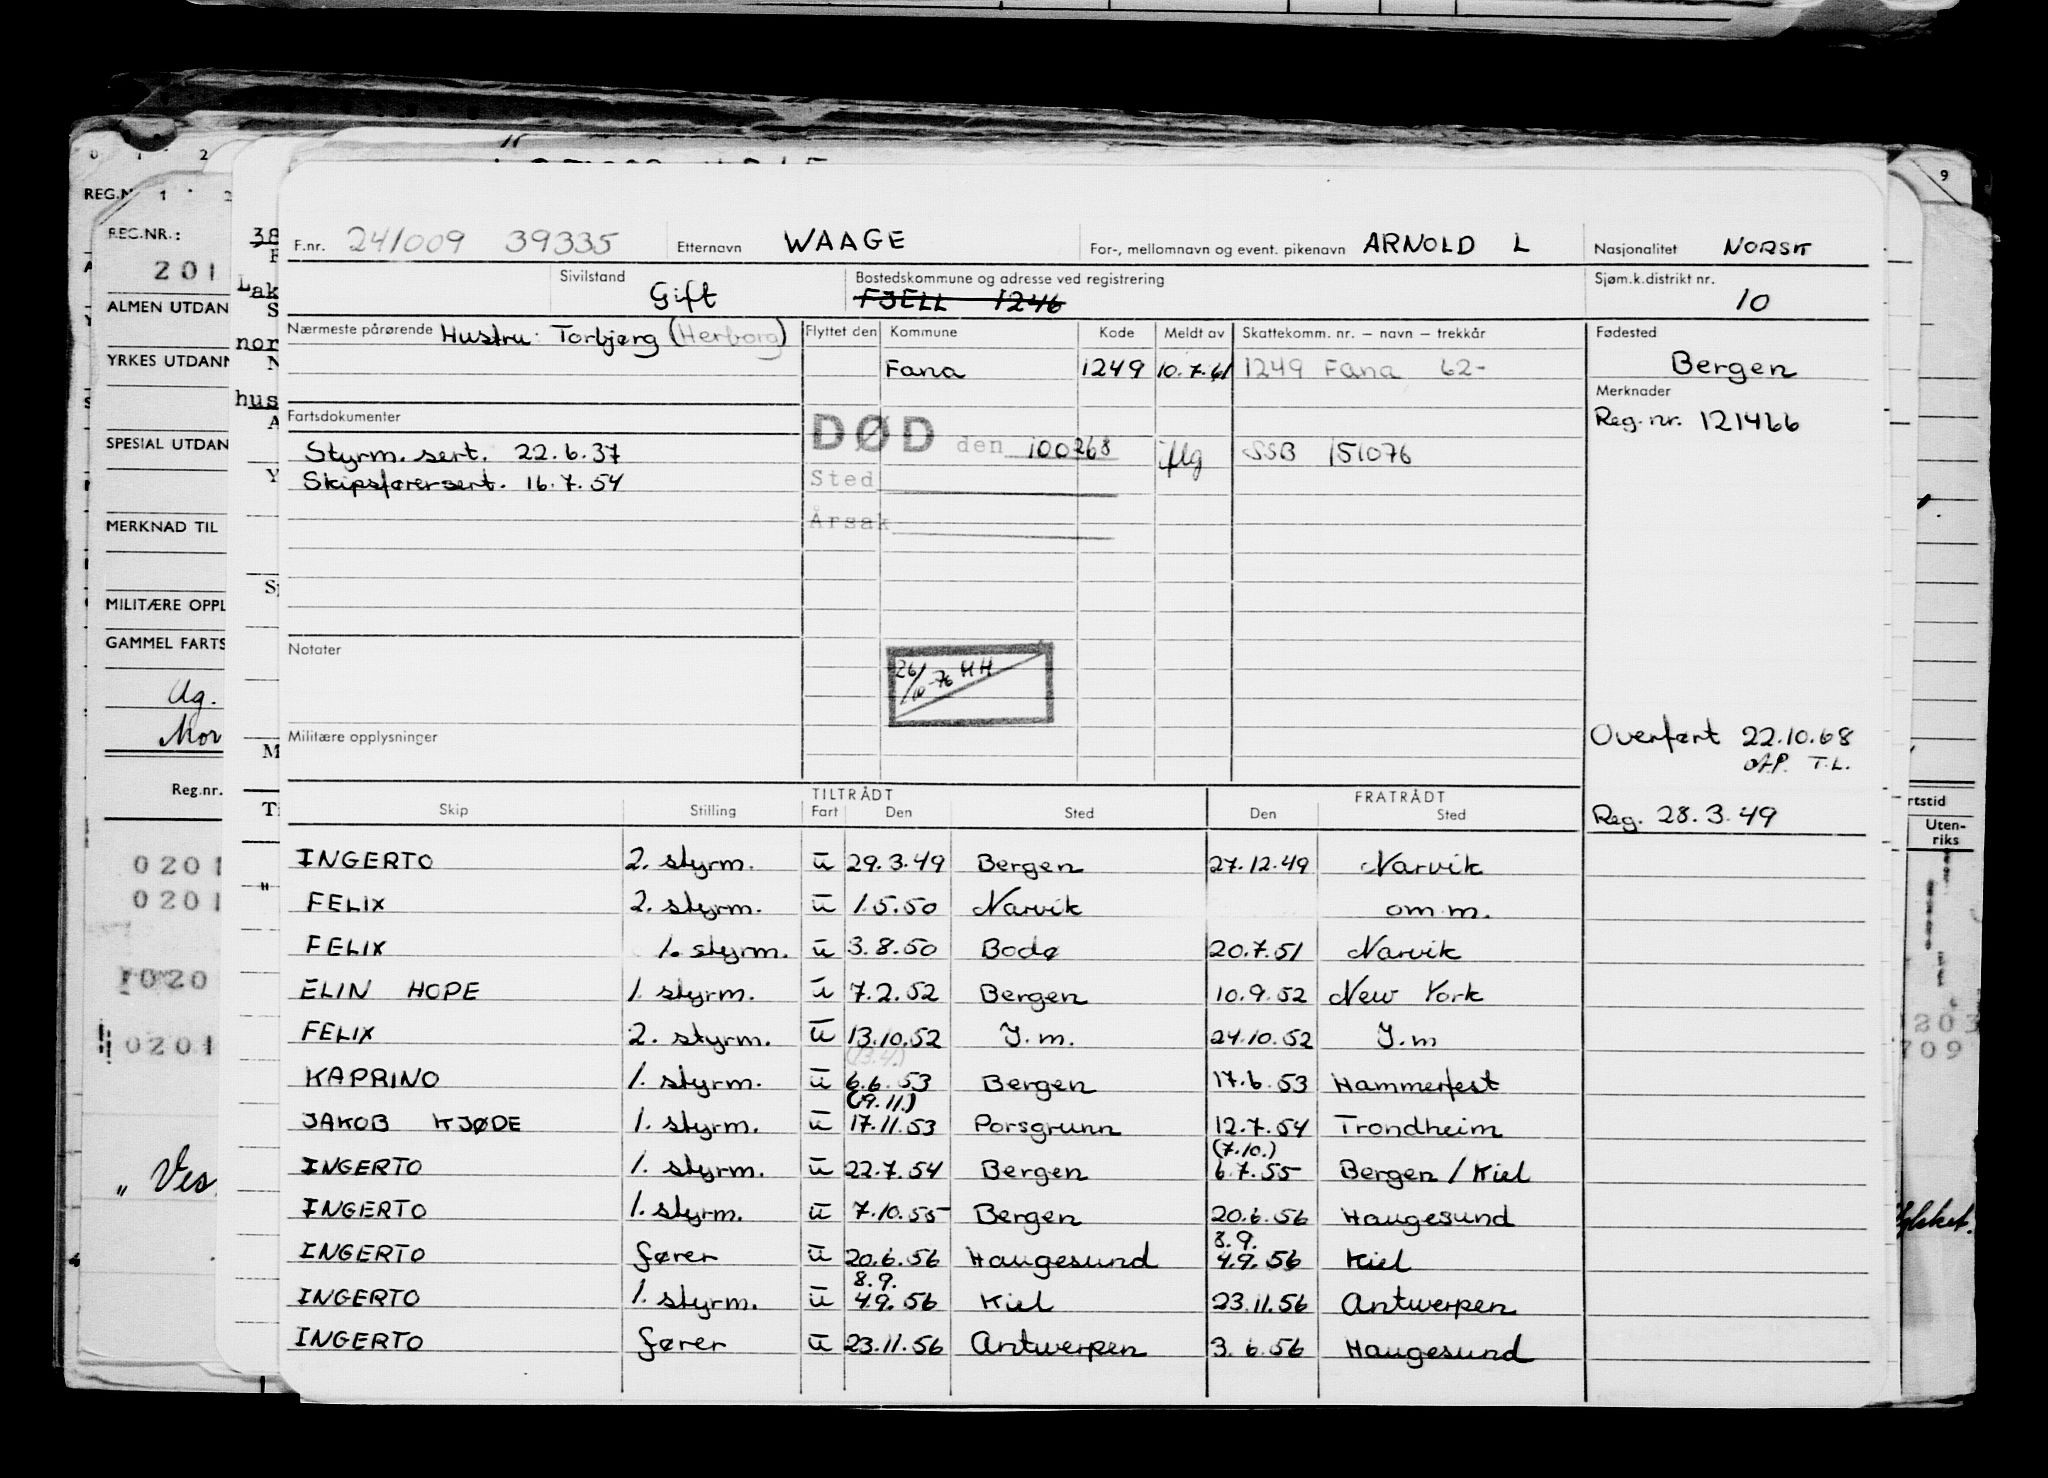 0 1 2
9
REG.N
1 2
REG.NR.:
201
ALMEN UTDAN
YRKES UTDANN
SPESIAL UTDAN
MERKNAD TIL
MILITÆRE OPPL
GAMMEL FARTS
Ag.
Mor
Reg.nr.
0201
0201
1020
0201
„ Ves.
38
Lak
nor
hus
F.nr. 241009 39335 Etternavn WAAGE For-, mellomnavn og event. pikenavn ARNOLD L Nasjonalitet NORSK
Sivilstand Gift Bostedskommune og adresse ved registrering FJELL 1246 Sjøm.k.distrikt nr. 10
Nærmeste pårørende Hustru: Torbjørg (Herborg) Flyttet den Kommune Kode Meldt av Skattekomm. nr. – navn – trekkår Fødested
Fana 1249 10.7.61 1249 Fana 62- Bergen
Merknader
Fartsdokumenter Reg. nr. 121466
DØD den 100268 SSB 151076
Styrm. sert. 22.6.37
Sted
Skipsførersert. 16.7.54
Årsak
Notater
26/10-76 HH
Militære opplysninger
Overført 22.10.68
T.L.
TILTRÅDT FRATRÅDT
Skip Stilling Fart Den Sted Den Sted
Reg. 28.3.49
INGERTO 2. styrm. u 29.3.49 Bergen 27.12.49 Narvik
FELIX 2. styrm. u 1.5.50 Narvik om.m.
FELIX 1. styrm. u 3.8.50 Bodø 20.7.51 Narvik
ELIN HOPE 1. styrm. u 7.2.52 Bergen 10.9.52 New York
FELIX 2. styrm. u 13.10.52 J.m. 24.10.52 J.m
(13.4.)
KAPRINO 1. styrm. u 6.6.53 Bergen 17.6.53 Hammerfest
(19.11.)
JAKOB KJØDE 1. styrm. u 17.11.53 Porsgrunn 12.7.54 Trondheim
(7.10.)
INGERTO 1. styrm. u 22.7.54 Bergen 6.7.55 Bergen / Kiel
INGERTO 1. styrm. u 7.10.55 Bergen 20.6.56 Haugesund
8.9.
INGERTO fører u 20.6.56 Haugesund 4.9.56 Kiel
8.9.
INGERTO 1. styrm. u 4.9.56 Kiel 23.11.56 Antwerpen
INGERTO fører u 23.11.56 Antwerpen 3.6.56 Haugesund
rtstid
Uten-
riks
203
709